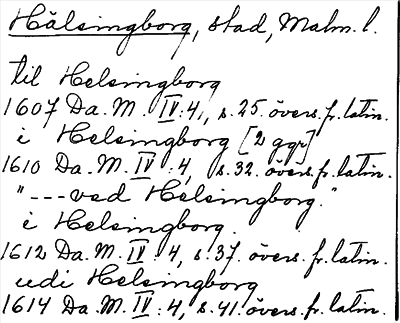 Hälsingborg, stad, Malm. l.
til Helsingborg
1607 Da. M. IV:4, s. 25. övers. fr. latin.
i Helsingborg [2 ggr]
1610 Da. M. IV :4, s. 32. övers. fr. latin.
"---ved Helsingborg."
i Helsingborg.
1612 Da. M. IV :4, s. 37. övers. fr. latin.
udi Helsingborg
1614 Da. M. IV :4, s. 41. övers. fr. latin.